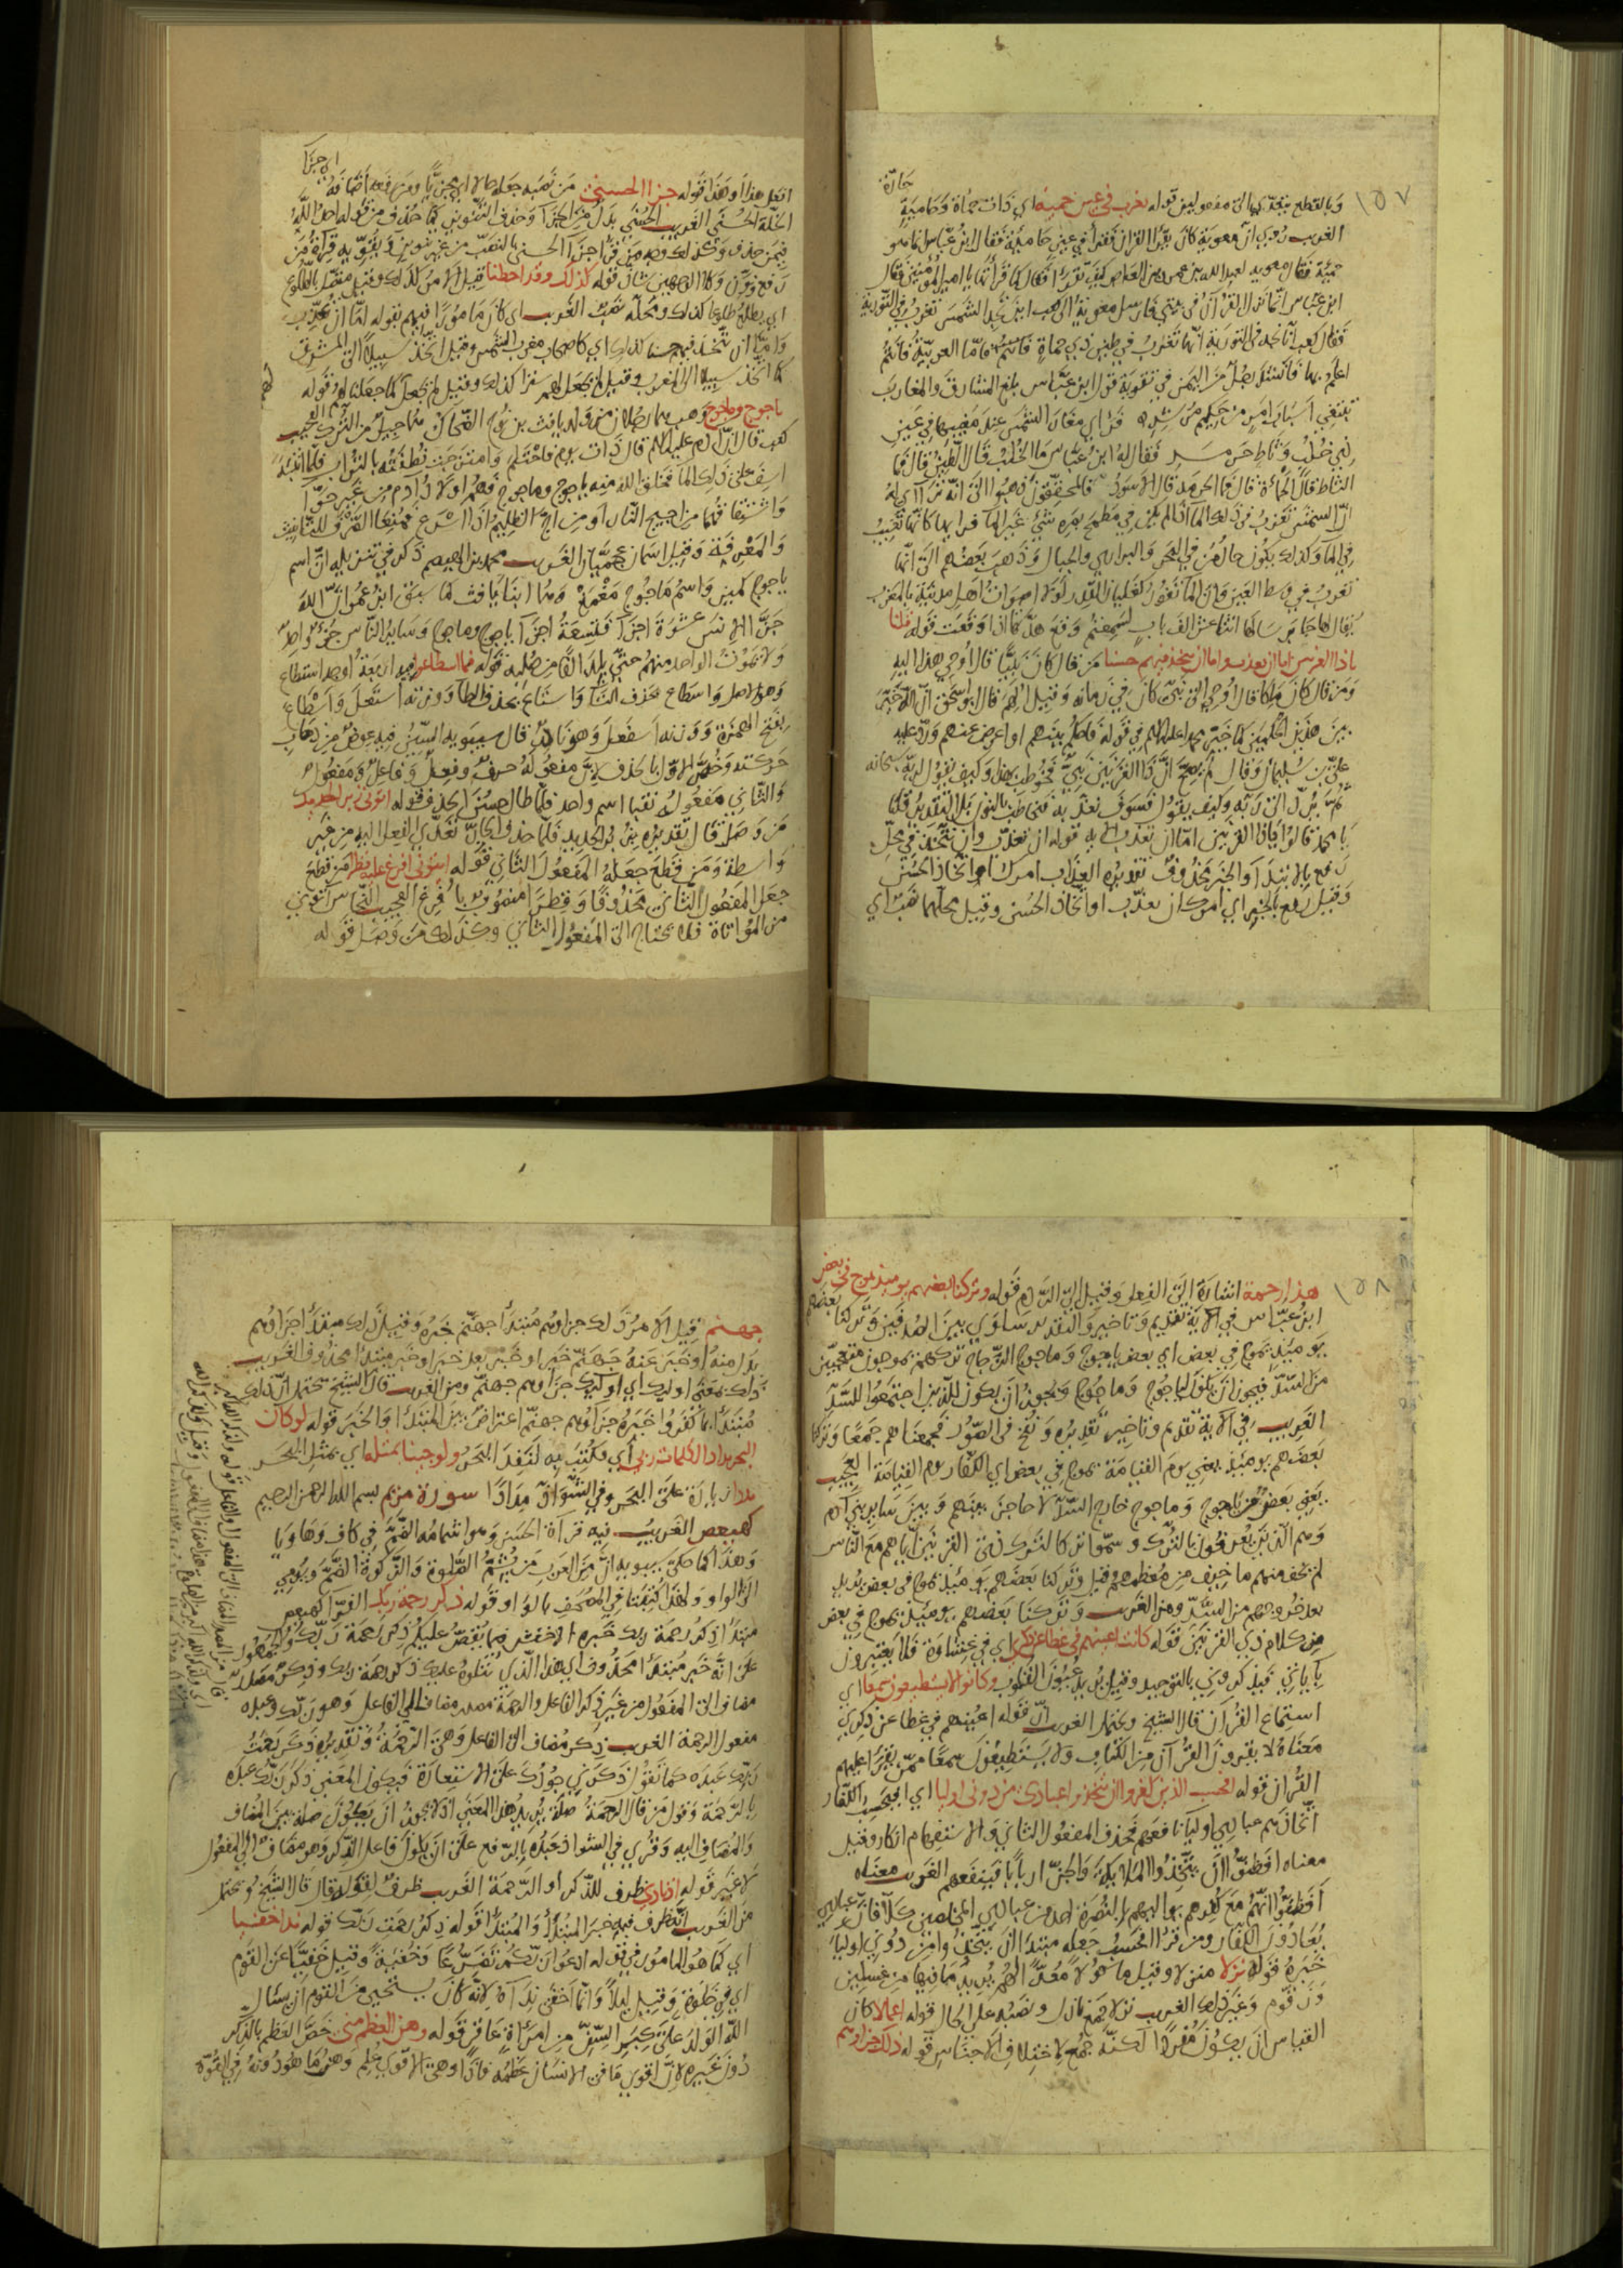 ١٥٧
وبالقطع يتعدى الى مفعولين قوله تغرب في عين حمئة اي ذات حماة وحامية
حارة
الغريب روي ان معوية كان يقرأ القران فقرأ في عين حامية فقال ابن عباس ما هو
حمئة فقال معوية لعبد الله بن عمرو بن العاص كيف تقرأ قال كما قرأتها يا امير المؤمنين فقال
ابن عباس انما نزل القرآن في بيتي فارسل معوية الى كعب اين تجد الشمس تغرب في التورية
فقال كعب انا نجد في التورية انها تغرب في طين ذي حماة فاما العربية فانتم
اعلم بها فانشد رجل من اليمن في تقوية قول ابن عباس بلغ المشارق والمغارب
يبتغي اسباب امر من حكيم مرشد فرأى مغار الشمس عند مغيبها في عين
ذي خلب وثاط حرمد فقال له ابن عباس ما الخلب قال الطين قال فما
الثاط قال الحمأة قال فما الحرمد قال الاسود فالمحققون ذهبوا الى انه تراآى له
ان الشمس تغرب في ذلك الماء اذا لم يكن في مطمح بصره شيء غير الماء فرايها كانها تغيب
في الماء وكذلك يكون حال من في البحر والبراري والجبال وذهب بعضهم الى انها
تغرب في وسط العين وان الماء تفور كغليان القدر ولولا اصوات اهل مدينة بالمغرب
يقال لها لها اثنا عشر الف باب لسمعتم وقع هدتها اذا وقعت قوله قلنا
ياذا القرنين اما ان تعذب واما ان تتخذ فيهم حسنا من قال كان نبيا قال اوحي هذا اليه
ومن قال كان ملكا قال اوحي الى نبي كان في زمانه وقيل الهم قال ابو اسحق ان الله خيره
بين هذين الحكمين كما خير محمدا عليه السلام في قوله فاحكم بينهم او اعرض عنهم ورد عليه
علي بن سليمان وقال لم يصح ان ذا القرنين نبي فخوطب بهذا وكيف يقول لربه سبحانه
ثم يرد الى ربه وكيف يقول فسوف نعذبه فخاطب بالنون بل التقدير قلنا
يا محمد قالوا ياذا القرنين اما ان تعذب قوله ان تعذب وان تتخذ في محل
رفع بالابتداء والخبر محذوف تقديره العذاب امرك او اتخاذ الحسن
وقيل رفع بالخبر اي امرك ان تعذب او اتخاذ الحسن وقيل محلهما نصب اي
افعل هذا او هذا قوله جزاء الحسنى من نصبه جعله حالا اي مجزيا ومن رفعه اضافه
الخلة الحسنى الغريب الحسنى بدل من الجزاء وحذف التنوين كما حذف من قوله احد الله
فيمن حذف وكذلك وجه من قرأ جزاء الحسنى بالنصب من غير تنوين ويقويه قراءة من
رفع ونون وكلا الوجهين شاذ قوله كذلك وقد احطنا قيل الامر كذلك وقيل متصل بالطلوع
اي يطلع طلوعا كذلك ومحله نصب الغريب اي كان مامورا فيهم بقوله اما ان تعذب
واما ان تتخذ فيهم حسنا كذلك اي كاصحاب مغرب الشمس وقيل اتخذ سبيلا الى المشرق
كما اتخذ سبيلا الى المغرب وقيل لم نجعل لهم سترا كذلك وقيل لم نجعل كما جعلنا لهم قوله
ياجوج وماجوج وهب هما رجلان من ولد يافث بن نوح الضحاك هما جيل من الترك العجيب
كعب قال ان ادم عليه السلام قال ذات يوم فاحتلم وامتزجت نطفته بالتراب فلما انتبه
اسف على ذلك الماء فخلق الله منه ياجوج وماجوج فهم اولاد ادم من غير حوا
واشتقاقهما من اجيج النار او من اج الظليم اذا اسرع فمنعا الصرف للتانيث
والمعرفة وقيل اسمان عجميان الغريب محمد بن الهيصم ذكر في تنزيله ان اسم
ياجوج كمين واسم ماجوج مغمغ وهما ابنا يافث كما سبق ابن عمر ان الله
جزأ الانس عشرة اجزاء فتسعة اجزاء ياجوج وماجوج وساير الناس جزء واحد
ولا يموت الواحد منهم حتى يلد الفا من صلبه قوله فما اسطاعوا فيه اربعة اوجه استطاع
وهو الاصل واسطاع بحذف التاء واستاع بحذف الطاء ووزنه استعل واسطاع
بفتح الهمزة ووزنه اسفعل وهو نادر قال سيبويه السين فيه عوض من ذهاب
حركته وخص الاول بالحذف لان مفعوله حرف وفعل وفاعل ومفعول
والثاني مفعوله نقبا اسم واحد فلما طال حسن الحذف قوله ائتوني زبر الحديد
من وصل قال تقديره بزبر الحديد فلما حذف الجار تعدى الفعل اليه من غير
واسطة ومن قطع جعله المفعول الثاني قوله ائتوني افرغ عليه قطرا من قطع
جعل المفعول الثاني محذوفا وقطرا منصوب بافرغ العجيب النحاس ائتوني
من المواتاة فلا يحتاج الى المفعول الثاني وكذلك من وصل قوله
١٥٨
هذا رحمة اشارة الى الفعل وقيل الى الردم قوله وتركنا بعضهم يومئذ يموج في بعض
ابن عباس في الاية تقديم وتاخير والتقدير ساوى بين الصدفين وتركنا بعضهم
يومئذ يموج في بعض اي بعض ياجوج وماجوج الزجاج تركهم يموجون متعجبين
من السد فيجوز ان يكون لياجوج وماجوج ويجوز ان يكون للذين اجتمعوا للسد
الغريب في الاية تقديم وتاخير تقديره ونفخ في الصور فجمعناهم جمعا وتركنا
بعضهم يومئذ يعني يوم القيامة يموج في بعض اي الكفار يوم القيامة العجيب
يعني بعض من ياجوج وماجوج خارج السد لا حاجز بينهم وبين ساير بني آدم
وهم الذين يعرفون بالترك وسموا تركا لترك ذي القرنين اياهم مع الناس
لم يخف منهم ما خيف من معظمهم وقيل وتركنا بعضهم يومئذ يموج في بعض يريد
بعد خروجهم من السد ومن الغريب وتركنا بعضهم يومئذ يموج في بعض
من كلام ذي القرنين قوله كانت اعينهم في غطاء عن ذكري اي في غشاوة فلا يعتبرون
باياتي فيذكرونني بالتوحيد وقيل يريد عيون القلوب وكانوا لا يستطيعون سمعا اي
استماع القران قال الشيخ ويحتمل الغريب ان قوله اعينهم في غطا عن ذكري
معناه لا يقرون القرآن من الكتاب ولا يستطيعون سمعا ممن يقرأ عليهم
القران قوله افحسب الذين كفروا ان يتخذوا عبادي من دوني اوليا اي افيحسب الكفار
اتخاذهم عبادي اولياء نافعهم فحذف المفعول الثاني والاستفهام انكار وقيل
معناه افظنوا ان يتخذوا الملائكة والجن اربابا فينفعهم الغريب معناه
افظنوا انهم مع كفرهم يواليهم بالنصرة احد من عبادي المخلصين كلا فان عبادي
يعادون الكفار ومن قرأ افحسب جعله مبتدا ان يتخذوا من دوني اولياء
خبره قوله نزلا منزلا وقيل ماكولا معدا لهم يريد مما فيها من غسلين
وزقوم وغير ذلك الغريب نزلا جمع نازل ونصبه على الحال قوله اعمالا كان
القياس ان يكون مفردا لكنه جمع لاختلاف الاجناس قوله ذلك جزاؤهم
جهنم قيل الامر ذلك جزاؤهم مبتدأ جهنم خبره وقيل ذلك مبتدأ جزاؤهم
بدل منه او خبر عنه جهنم خبر او خبر بعد خبر او خبر مبتدا محذوف الغريب
ذلك بمعنى اولئك اي اولئك جزاؤهم جهنم ومن الغريب قال الشيخ يحتمل ان ذلك
مبتدأ بما كفروا خبره جزاؤهم جهنم اعتراض بين المبتدأ والخبر قوله لو كان
البحر مدادا لكلمات ربي اي فكتب به لنفد البحر ولو جئنا بمثله اي بمثل البحر
مدادا زيادة على البحر وفي الشواذ مدادا سورة مريم بسم الله الرحمن الرحيم
كهيعص الغريب فيه قراة الحسن وهو اشمامه الضم في كاف وها ويا
وهذا كما حكى سيبويه ان من العرب من يشم الصلوة والزكوة الضم ويومي
الى الواو ولهذا كتبتا في المصحف بالواو قوله ذكر رحمة ربك الفراء كهيعص
مبتدأ ذكر رحمة ربك خبره الاخفش فيما يقص عليكم ذكر رحمة ربك
على انه خبر مبتدأ محذوف اي هذا الذي نتلوه عليك ذكر رحمة ربك وذكر مصدر
مضاف الى المفعول من غير ذكر الفاعل والرحمة مصدر مضاف الى الفاعل وهو ربك وعبده
مفعول الرحمة الغريب ذكر مضاف الى الفاعل وهي الرحمة وتقديره ذكرت رحمت
ربك عبده كما تقول ذكرني جودك على الاستعارة فيكون المعنى ذكر ربك عبده
بالرحمة وقول من قال الرحمة صلة يريد هذا المعنى اذ لا يجوز ان يكون صلة بين المضاف
والمضاف اليه وقري في الشواذ عبده بالرفع على ان يكون فاعل الذكر وهو مضاف الى المفعول
لا غير قوله اذ نادى ظرف للذكر او الرحمة الغريب ظرف لقوله قال قال الشيخ ويحتمل
من الغريب انه ظرف فيه خبر المبتدأ والمبتدأ قوله ذكر رحمت ربك قوله نداء خفيا
اي كما هو المامور في قوله ادعوا ربكم تضرعا وخفية وقيل خفيا عن القوم
اي في خلوة وقيل ليلا وانما اخفى نداءه لانه كان يستحيي من القوم ان يسال
الله الولد على كبر السن من امرأة عاقر قوله وهن العظم مني خص العظم بالذكر
دون غيره لان اقوى ما في الانسان عظمه فاذا وهى الاقوى علم وهن ما هو دونه في القوة